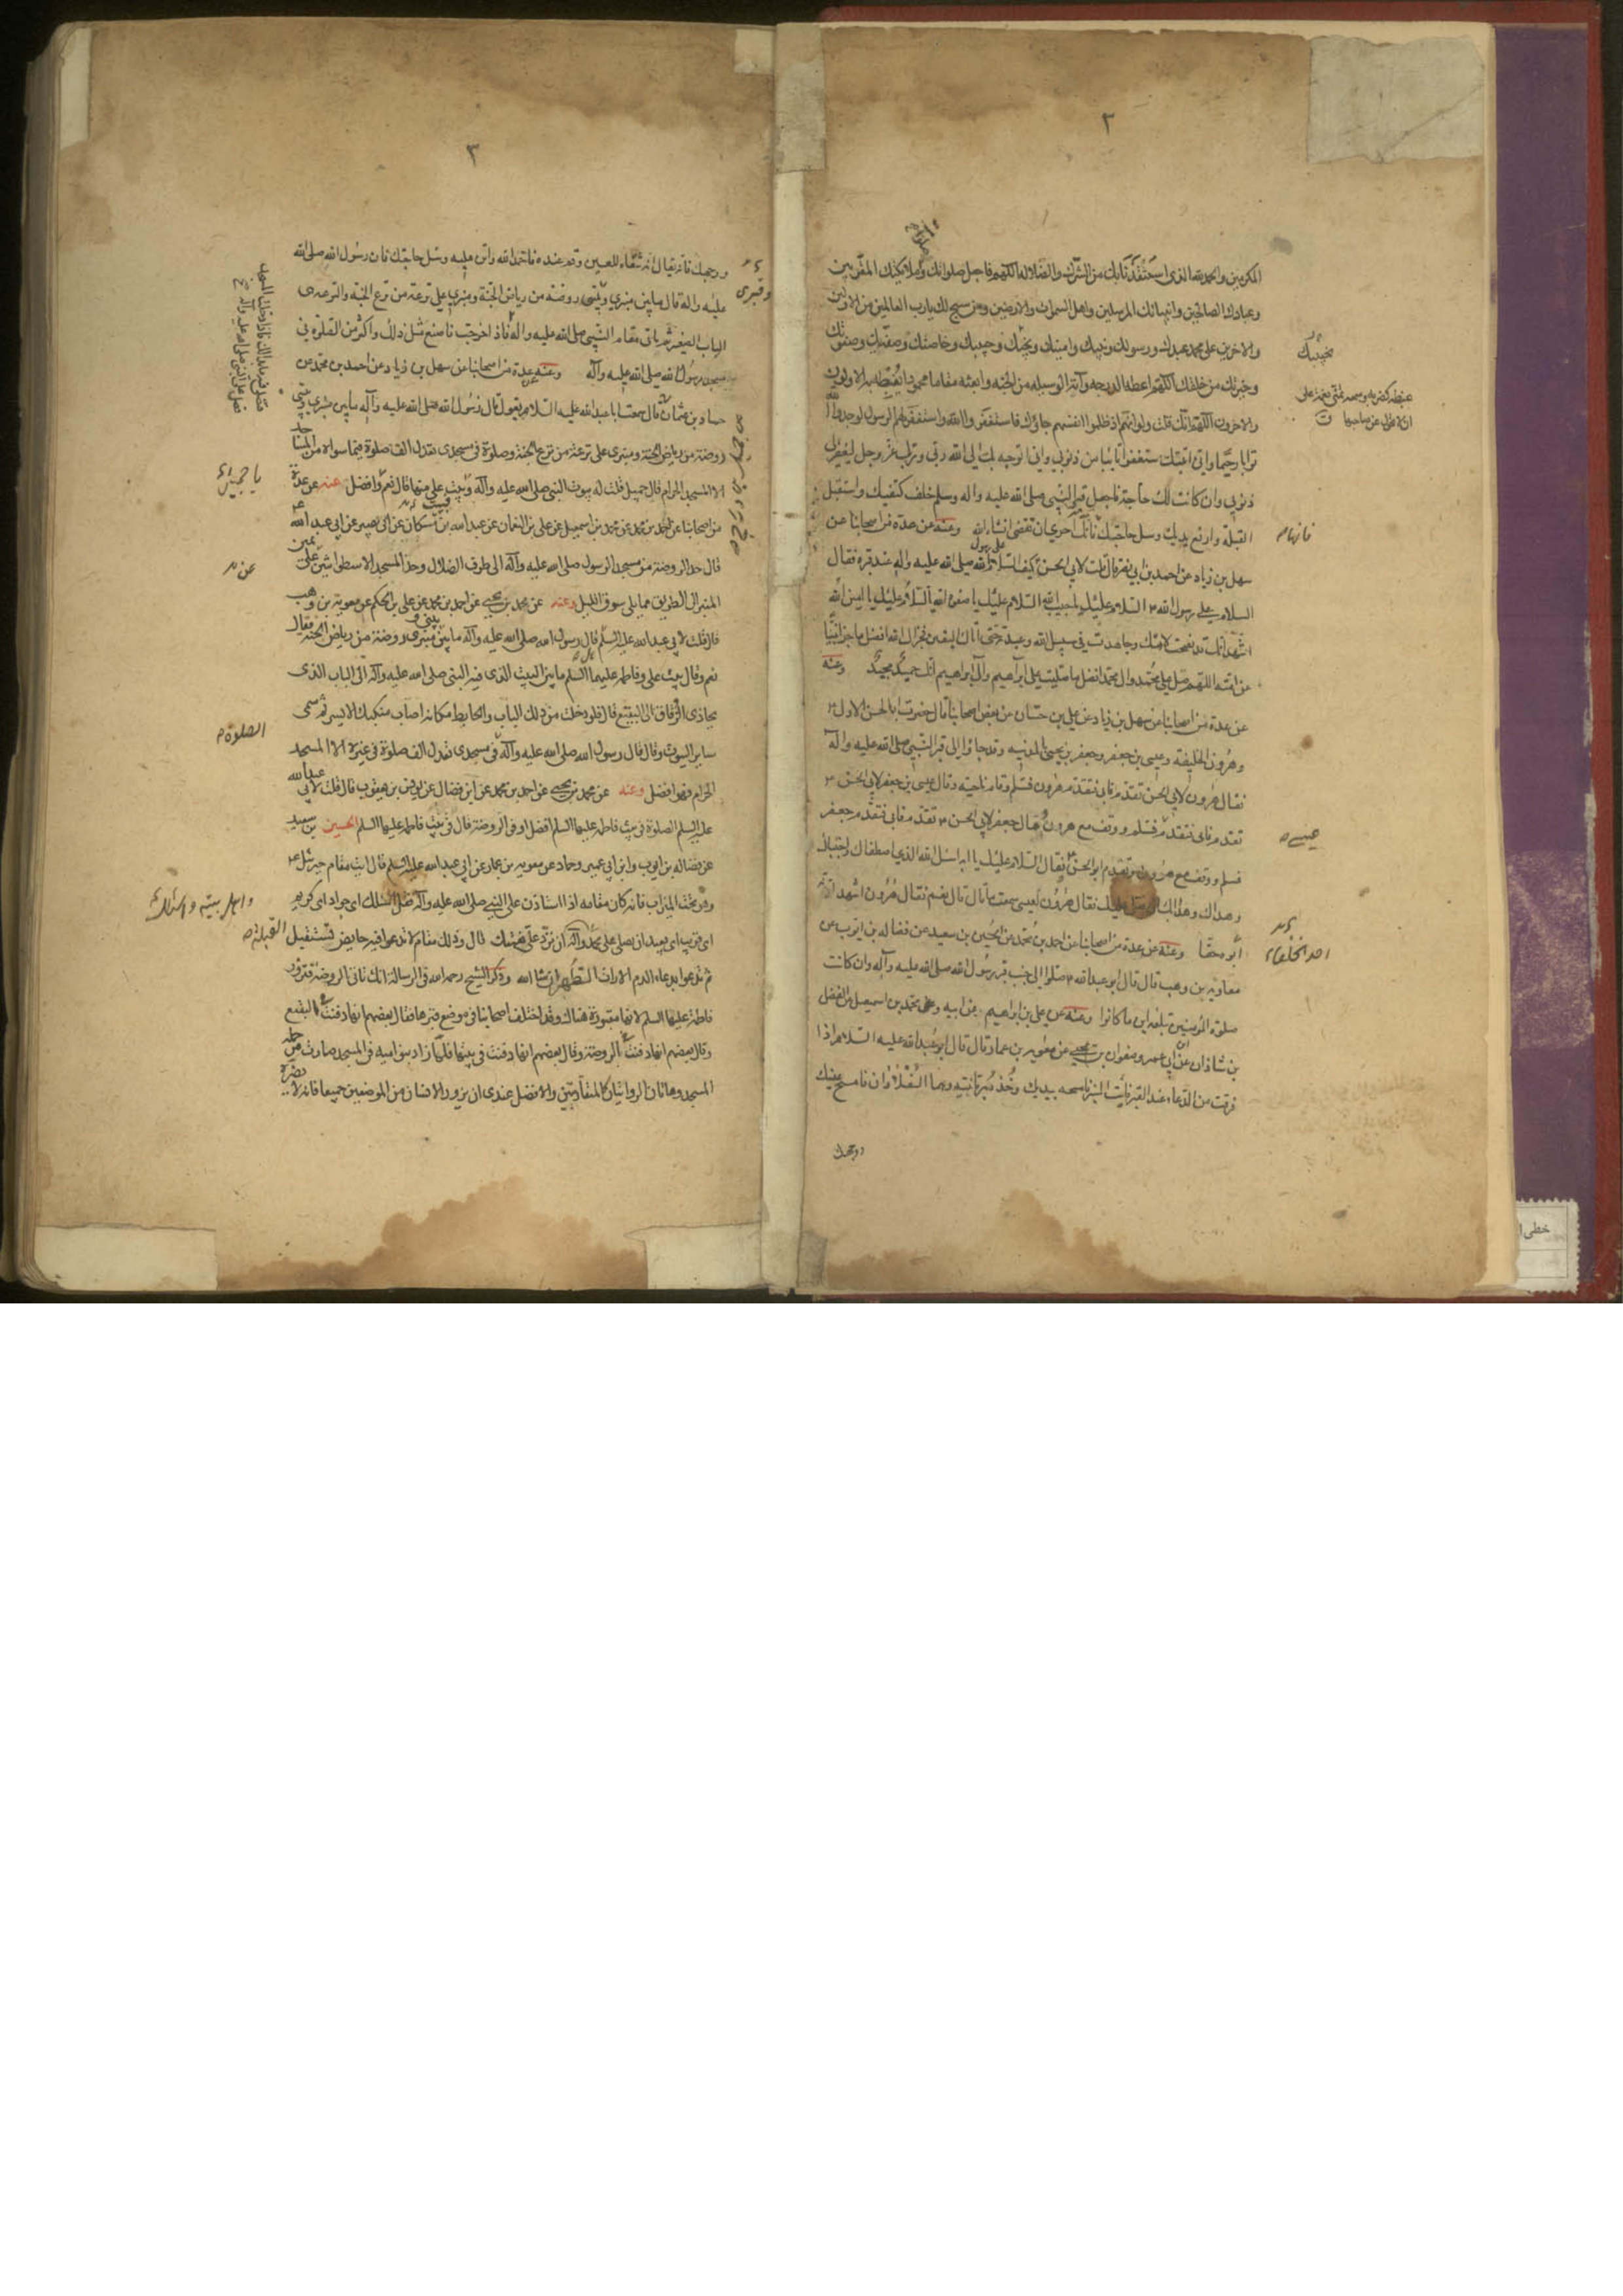 ٢
المكرمين والحمد لله الذي استنقذنا بك من الشرك والضلالة اللهم فاجعل صلواتك وصلاة ملائكتك المقربين
وعبادك الصالحين وانبيائك المرسلين واهل السموات والارضين ومن سبح لك يا رب العالمين من الاولين
والاخرين على محمد عبدك ورسولك ونبيك وامينك ونجيك وحبيبك وخاصتك وصفيك وصفوتك
وخيرتك من خلقك اللهم اعطه الدرجة وآته الوسيلة من الجنة وابعثه مقاما محمودا يغبطه به الاولون
والاخرون اللهم انك قلت ولو انهم اذ ظلموا انفسهم جاؤك فاستغفروا الله واستغفر لهم الرسول لوجدوا الله
توابا رحيما واني اتيتك مستغفرا تائبا من ذنوبي واني اتوجه بك الى الله ربي وربك عز وجل ليغفر لي
ذنوبي وان كانت لك حاجة فاجعل قبر النبي صلى الله عليه واله وسلم خلف كتفيك واستقبل
القبلة وارفع يديك وسل حاجتك فانك احرى ان تقضى انشاء الله وعنه عن عدة من اصحابنا عن
سهل بن زياد عن احمد بن ابي نصر قال قلت لابي الحسن كيف السلام على رسول الله صلى الله عليه واله عند قبره فقال
السلام على رسول الله السلام عليك يا حبيب الله السلام عليك يا صفوة الله السلام عليك يا امين الله
اشهد انك قد نصحت لامتك وجاهدت في سبيل الله وعبدته حتى اتاك اليقين فجزاك الله افضل ما جزا نبيا
عن امته اللهم صل على محمد وال محمد افضل ما صليت على ابرهيم وآل ابراهيم انك حميد مجيد وعنه
عن عدة من اصحابنا عن سهل بن زياد عن علي بن حسان عن بعض اصحابنا قال حضرت ابا الحسن الاول
وهرون الخليفة وعيسى بن جعفر وجعفر بن يحيى بالمدينة وقد جاؤا الى قبر النبي صلى الله عليه واله
فقال هرون لابي الحسن تقدم فابى فتقدم هرون فسلم وقام ناحية وقال عيسى بن جعفر لابي الحسن
تقدم فابى فتقدم فسلم ووقف مع هرون وقال جعفر لابي الحسن تقدم فابى فتقدم جعفر
فسلم ووقف مع هرون وتقدم ابو الحسن فقال السلام عليك يا ابه اسئل الله الذي اصطفاك واجتباك
وهداك وهدى بك ان يصلي عليك فقال هرون لعيسى سمعت ما قال قال نعم فقال هرون اشهد انه
ابوه حقا وعنه عن عدة من اصحابنا عن احمد بن محمد عن الحسين بن سعيد عن فضالة بن ايوب عن
معاوية بن وهب قال قال ابو عبد الله صلوا الى جنب قبر رسول الله صلى الله عليه وآله وان كانت
صلوة المؤمنين تبلغه اين ما كانوا وعنه عن علي بن ابراهيم عن ابيه وعن محمد بن اسمعيل عن الفضل
بن شاذان عن ابن ابي عمير وصفوان بن يحيى عن معوية بن عمار قال قال ابو عبد الله عليه السلام اذا
فرغت من الدعاء عند القبر فأت المنبر فامسحه بيدك وخذ برمانتيه وهما السفلاوان فامسح عينيك
ووجهك
احد الخلفاء
٣
ووجهك فانه يقال انه شفاء للعين وقم عنده فاحمد الله واثن عليه وسل حاجتك فان رسول الله صلى الله
عليه واله قال ما بين منبري وبيتي روضة من رياض الجنة ومنبري على ترعة من ترع الجنة والترعة هى
الباب الصغير ثم تاتي مقام النبي صلى الله عليه واله فاذا خرجت فاصنع مثل ذلك واكثر من الصلوة في
مسجد رسول الله صلى الله عليه وآله وعنه عن عدة من اصحابنا عن سهل بن زياد عن احمد بن محمد عن
حماد بن عثمان قال سمعت ابا عبد الله عليه السلام يقول قال رسول الله صلى الله عليه وآله ما بين منبري وبيتي
روضة من رياض الجنة ومنبري على ترعة من ترع الجنة وصلوة في مسجدى تعدل الف صلوة فيما سواه من المساجد
الا المسجد الحرام قال جميل قلت له بيوت النبي صلى الله عليه وآله وبيت علي منها قال نعم وافضل عنه عن عدة
من اصحابنا عن احمد بن محمد عن محمد بن اسمعيل عن علي بن النعمان عن عبد الله بن مسكان عن ابي بصير عن ابي عبد الله
قال حد الروضة من مسجد الرسول صلى الله عليه وآله الى طرف الظلال وحد المسجد الاسطوانتين عن يمين
المنبر الى الطريق مما يلي سوق الليل وعنه عن محمد بن يحيى عن احمد بن محمد عن علي بن الحكم عن معوية بن وهب
قال قلت لابي عبد الله عليه السلم قال رسول الله صلى الله عليه وآله ما بين بيتي ومنبرى روضة من رياض الجنة فقال
نعم وقال بيت علي وفاطمة عليهما السلم ما بين البيت الذى فيه النبي صلى الله عليه وآله الى الباب الذى
يحاذى الزقاق الى البقيع قال فلو دخلت من ذلك الباب والحايط مكانه اصاب منكبك الايسر ثم سمى
ساير البيوت وقال قال رسول الله صلى الله عليه وآله في مسجدى تعدل الف صلوة في غيره الا المسجد
الحرام فهو افضل وعنه عن محمد بن يحيى عن احمد بن محمد عن ابن فضال عن يونس بن يعقوب قال قلت لابي عبد الله
عليه السلم الصلوة في بيت فاطمة عليها السلم افضل او في الروضة قال في بيت فاطمة عليها السلم الحسين بن سعيد
عن فضالة بن ايوب وابن ابي عمير وحماد عن معوية بن عمار عن ابي عبد الله عليه السلم قال ائت مقام جبرئيل
وهو تحت الميزاب فانه كان مقامه اذا استاذن على النبي صلى الله عليه وآله فقل اسئلك اى جواد اى كريم
اى قريب اى بعيد ان تصلي على محمد وآله ان ترد علي نعمتك قال وذلك مقام لا تدعوا فيه حايض تستقبل القبلة
ثم تدعوا بدعاء الدم الا رات الطهر ان شا الله وذكر الشيخ رحمه الله في الرسالة انك تاتي الروضة فتزور
فاطمة عليها السلم لانها مقبورة هناك وقد اختلف اصحابنا في موضع قبرها فقال بعضهم انها دفنت بالبقيع
وقال بعضهم انها دفنت بالروضة وقال بعضهم انها دفنت في بيتها فلما زاد بنو امية في المسجد صارت من جملة
المسجد وهاتان الروايتان كالمتقاربتين والافضل عندى ان يزور الانسان من الموضعين جميعا فانه لا يضره
وقبرى
يا جميل
الصلوة
واهل بيته واسئلك